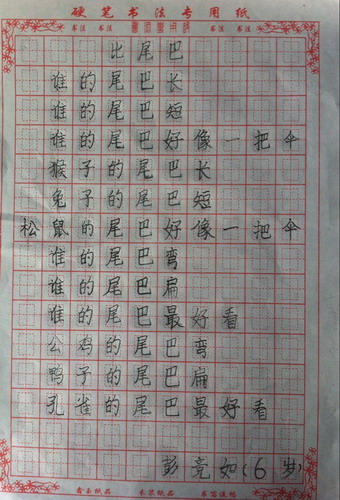 硬笔书法专用纸
书法 书法 书法 书法
比尾巴
谁的尾巴长
谁的尾巴短
谁的尾巴好像一把伞
猴子的尾巴长
兔子的尾巴短
松鼠的尾巴好像一把伞
谁的尾巴弯
谁的尾巴扁
谁的尾巴最好看
公鸡的尾巴弯
鸭子的尾巴扁
孔雀的尾巴最好看
彭竞如(6岁)